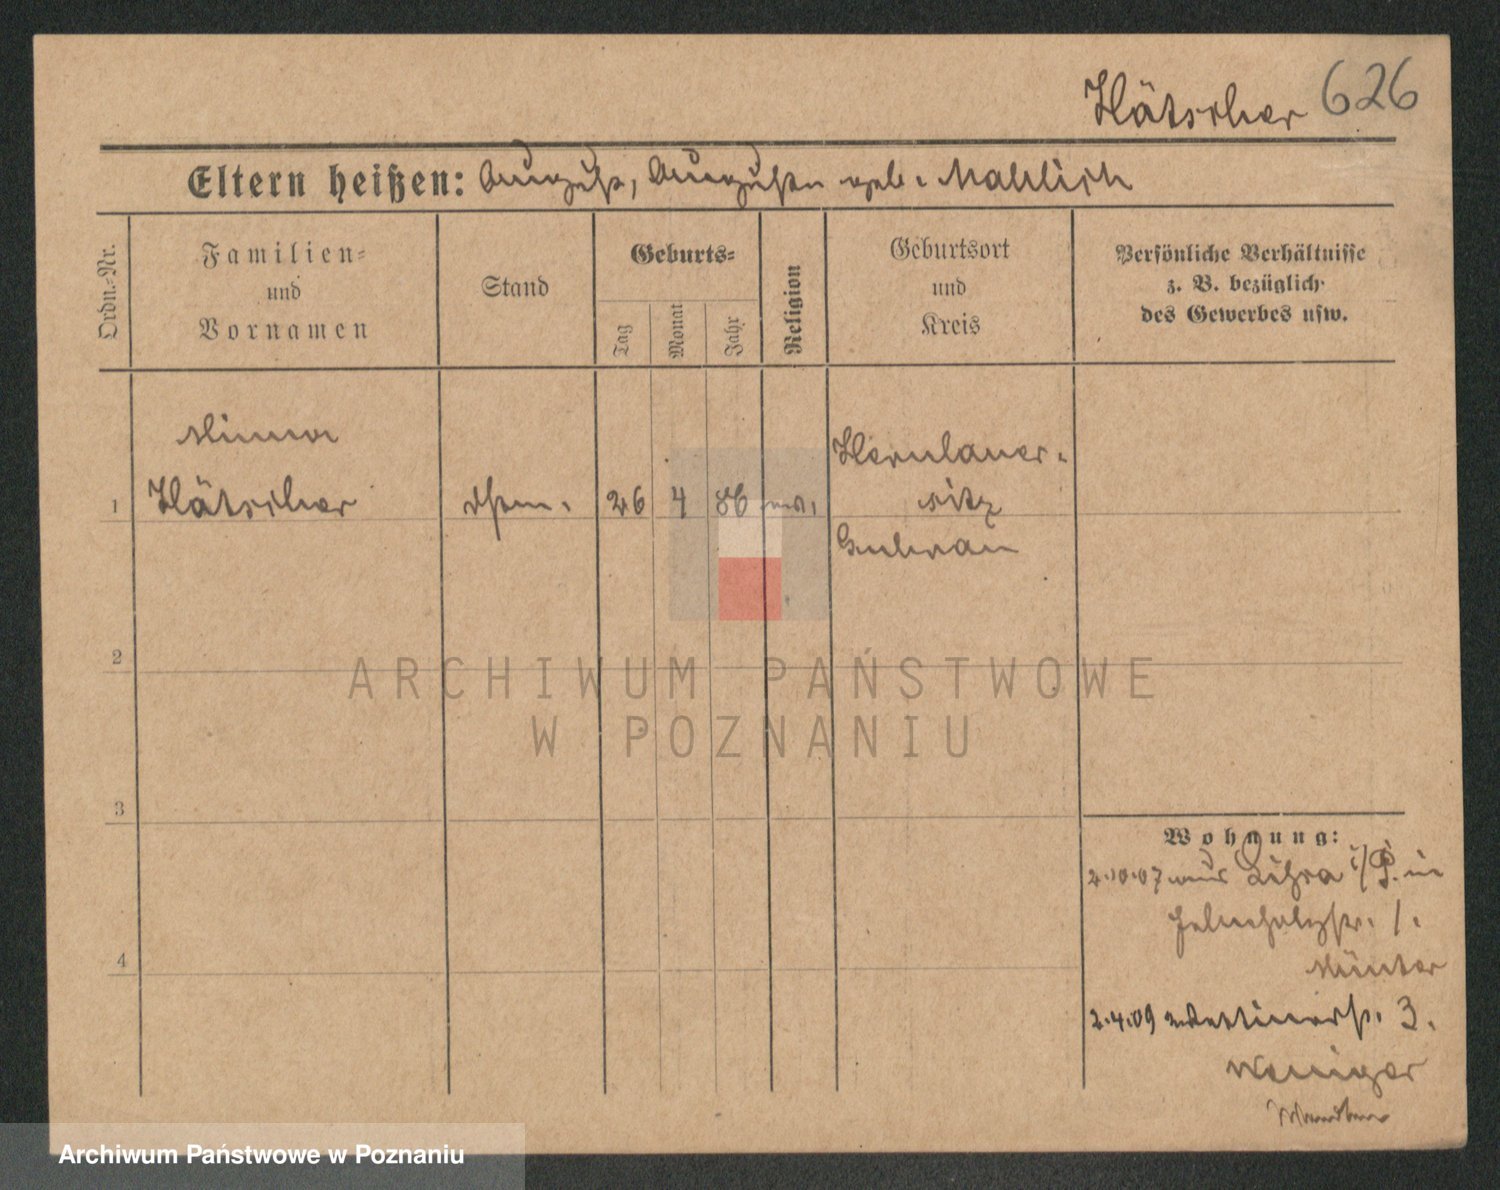 Hätscher 626
Eltern heißen: August, Auguste geb. Mahlich
Ordn.-Nr.
Familien-
und
Vornamen
Stand
Geburts-
Tag
Monat
Jahr
Religion
Geburtsort
und
Kreis
Persönliche Verhältnisse
z. B. bezüglich
des Gewerbes usw.
Minna
1 Hätscher 26 4 86
Herrnlauer-
sitz
Guhrau
2
3
4
Wohnung:
2.10.07 aus i/P. in
1.
Münter
2.4.09 3.
Weniger
ARCHIWUM PAŃSTWOWE
W POZNANIU
Archiwum Państwowe w Poznaniu